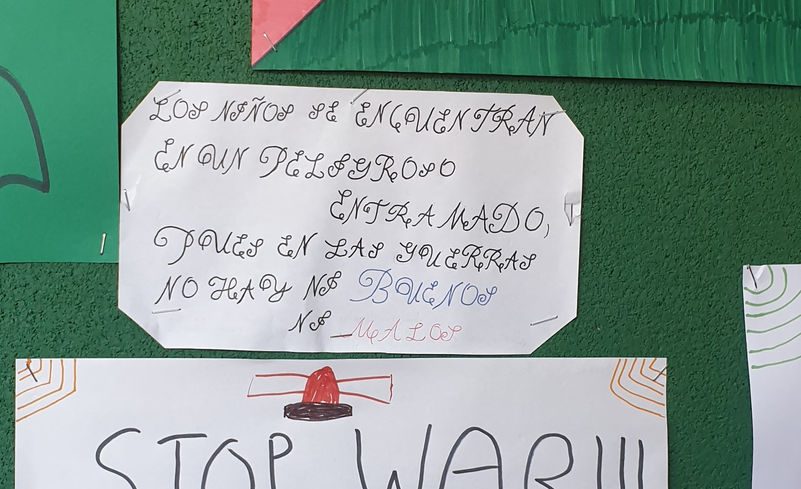 LOS NIÑOS SE ENCUENTRAN
EN UN PELIGROSO
ENTRAMADO,
PUES EN LAS GUERRAS
NO HAY NI BUENOS
NI MALOS
STOP WAR!!!